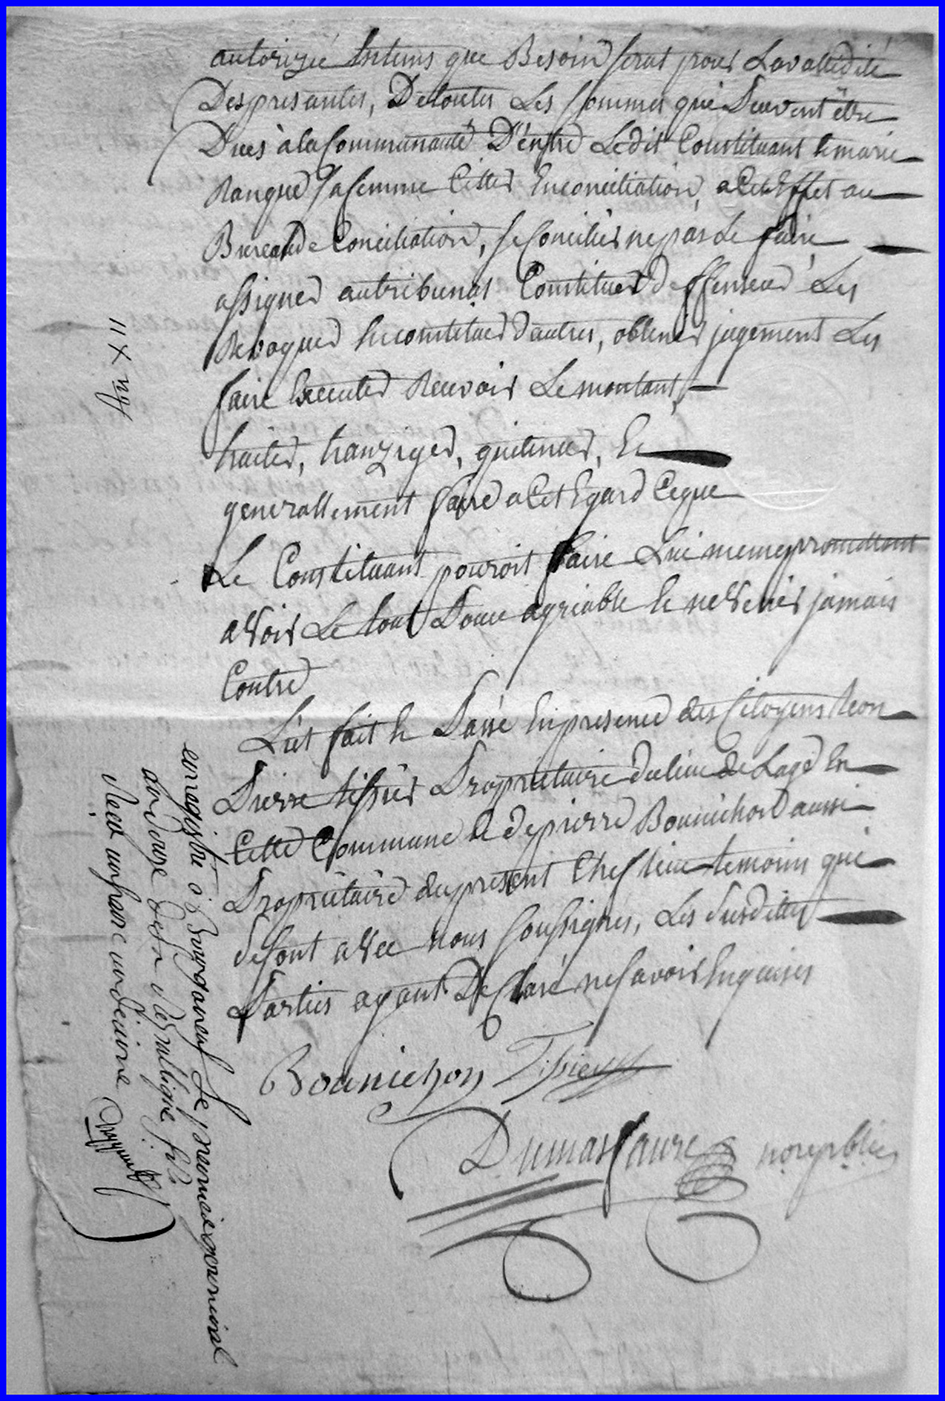 autorizée entems que Besoin serat pour Lavallidité
Des presantes, De toutes Les sommes qui Peuvent être
Dues à la Communauté D'entre Ledit Constituant & marie
sa femme Citter Enconciliation, a Cet Effet au
Bureau de Conciliation, se Concilier ne pas Le faire
assigner au tribunal Constituer deffenseur Les
Revoquer En constituer d'autres, obtenir jugement Les
faire Executer Recevoir Le montant,
traiter, tranziger, quitencer, Et
generallement faire a Cet Egard Ceque
Le Constituant pouroit faire Lui meme promettant
avoir Le tout Pour agriable & ne venir jamais
Contre
fait & Passé En presence des Citoyens Leon
Pierre Propriétaire du lieu de Lage En
Cette Commune & de pierre Bounichon aussi
Propriétaire du present Chef lieu temoins qui
se sont avec nous soussignes, Les susdittes
Parties ayant Declaré ne savoir En quérir
Bounichon Tissier
Dumasfaure no re public
enregistré à Bourganeuf Le premier germinal
an douze
Reçu un franc